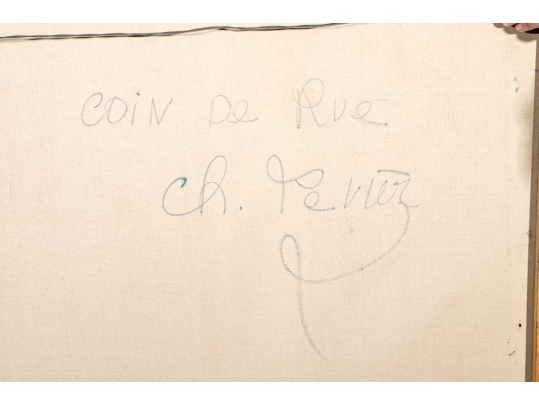 COIN De Rue
Ch. Levier